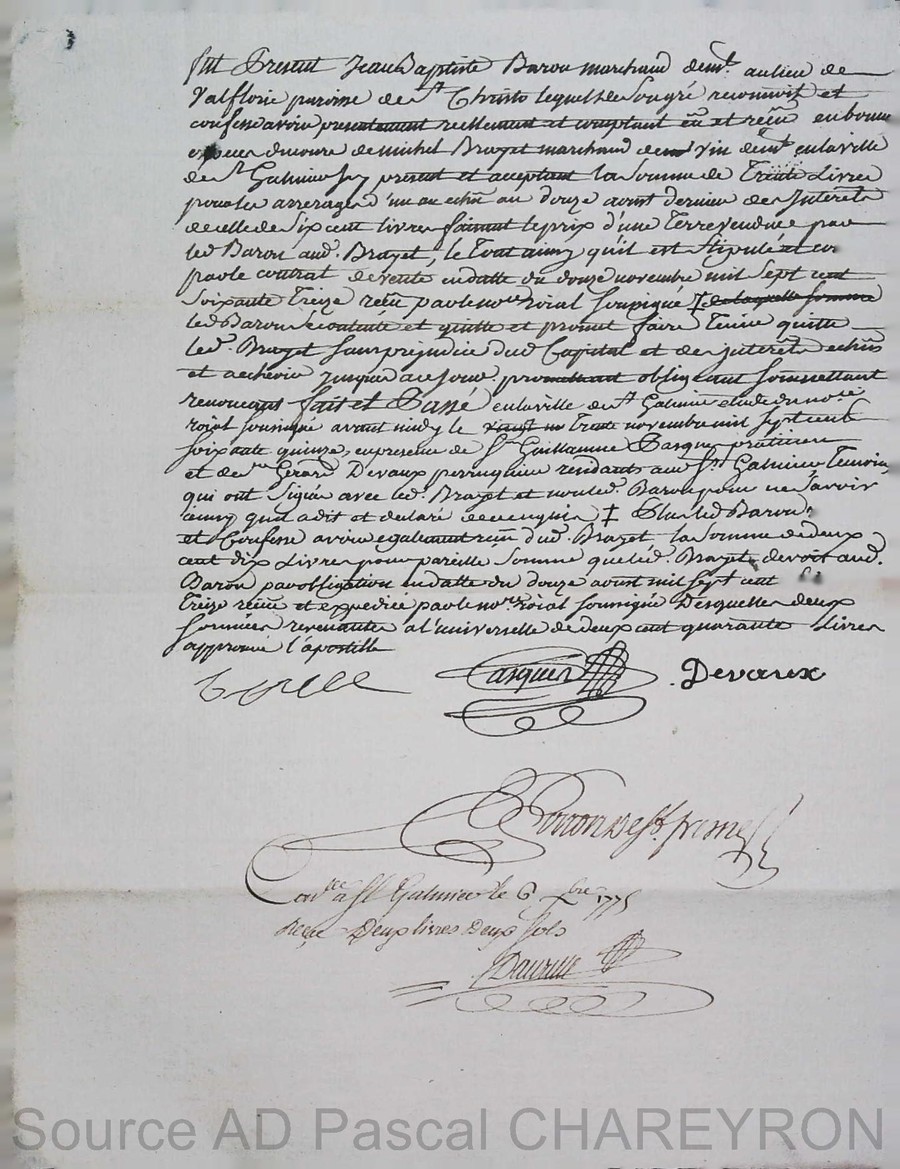 fut Present Jean Baptiste Baron marchand demt. au lieu de
Valflorie paroisse de St Christo lequel de son gré reconnoit et
confesse avoir presentement reellement et comptant eu et reçu en bonne
especes du cours de michel Brazet marchand de vin demt. en la ville
de St Galmier Icy present et aceptant la somme de Trente Livres
pour les arrerages d'un an echu au douze aoust dernier des Interets
de celle de six cent livres faisant le prix d'une Terre vendue par
led Baron aud. Brazet, le Tout ainsy qu'il est Stipulé et
par le contrat de vente en datte du douze novembre mil sept cent
soixante Treize reçu par le nore Roial soussigné ‡ de laquelle somme
led Baron contente et quitte et promet faire Tenir quitte
led. Brazet sans prejudice dud Capital et des interets echus
et a echevir Jusques a ce jour. promettant obligeant soumettant
renonceant fait et Passé en la ville de St Galmier etude du nore
roial soussigné avant midy le Trente novembre mil sept cent
soixante quinze, en presence de Sr Guillaume Pasquier praticien
et de sr Gerard Devaux perruquier residants aud St Galmier Temoins
qui ont signés avec led. Brazet et non led. Baron pour ne scavoir
ainsy qu'il a dit et declaré de ce enquis ‡ Plus led Baron
et Confesse avoir egalement reçu dud. Brazet la somme de deux
cent dix Livres pour pareille somme que led. Brazet devoit aud.
Baron par obligation en datte du douze aoust mil sept cent
Treize reçue et expediée par le nore Roial soussigné Desquelles deux
sommes revenantes a l'universelle de deux cent quarante Livres
approuvé l'apostille
Pasquier Devaux
Conlee a St Galmier le 6 Xbre 1775
Reçu Deux livres Deux sols
Source AD Pascal CHAREYRON